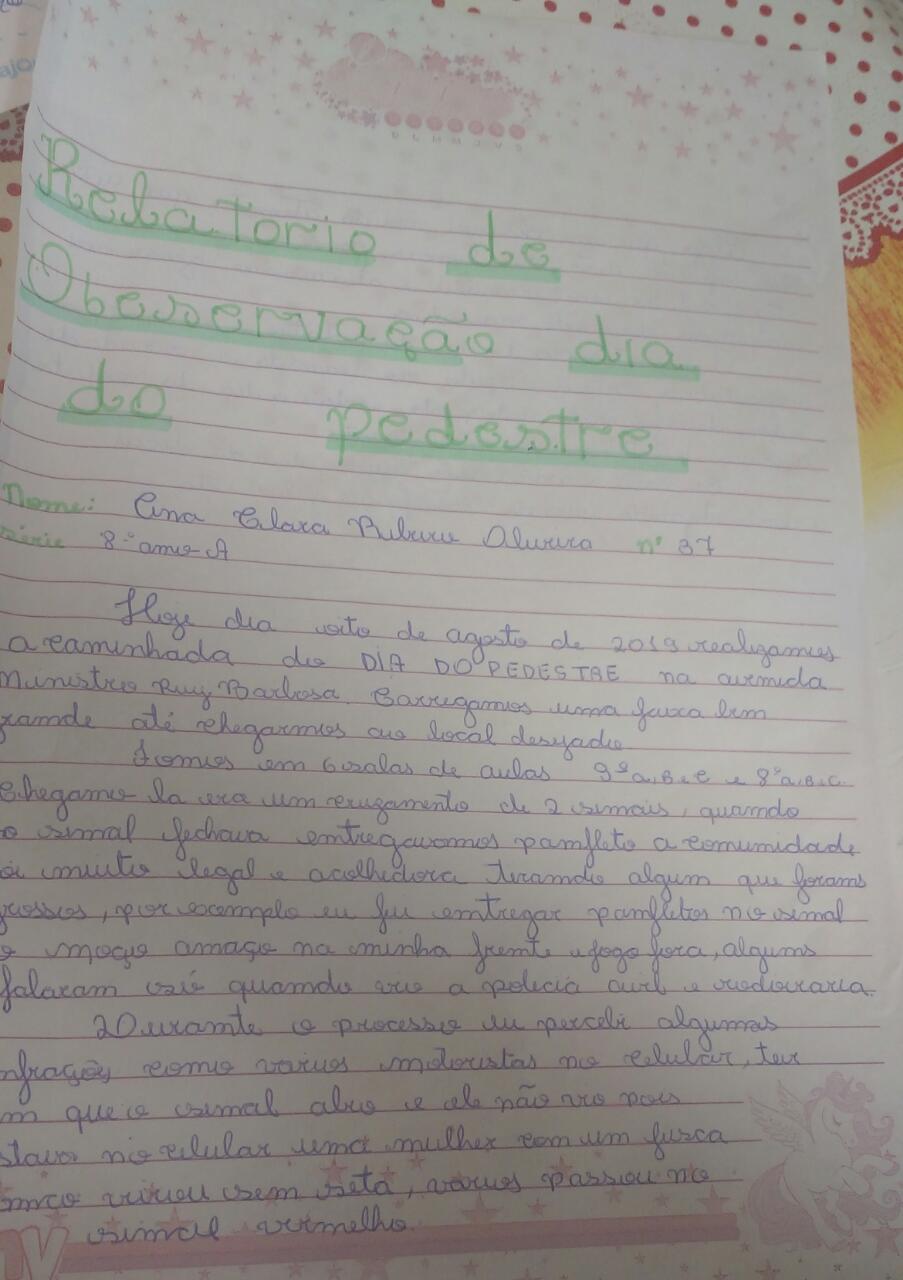 Relatorio de
Obeservação dia
do pedestre
Nome: Ana Clara Oliveira n° 37
Série 8° ano A
Hoje dia oito de agosto de 2019 realizamos
a caminhada do DIA DO PEDESTRE na avenida
Ministro Ruy Barbosa. Carregamos uma faixa bem
grande até chegarmos ao local desejado.
Fomos em 6 salas de aulas 9°a,B e C e 8°a,B,C.
Chegamo la era um cruzamento de 2 sinais, quando
o sinal fechava entregavamos panfleto a comunidade
oi muito legal e acolhedora tirando algum que foram
grossos, por exemplo eu fui entregar panfletos no sinal
o moço amaço na minha frente e jogo fora, alguns
falaram quando a policia civil e rodoviaria.
Durante o processo eu percebi algumas
nfrações como varios motoristas no celular, teve
m que o sinal abriu e ele não viu pois
stava no celular uma mulher com um fusca
virou sem seta, varios passou no
sinal vermelho.